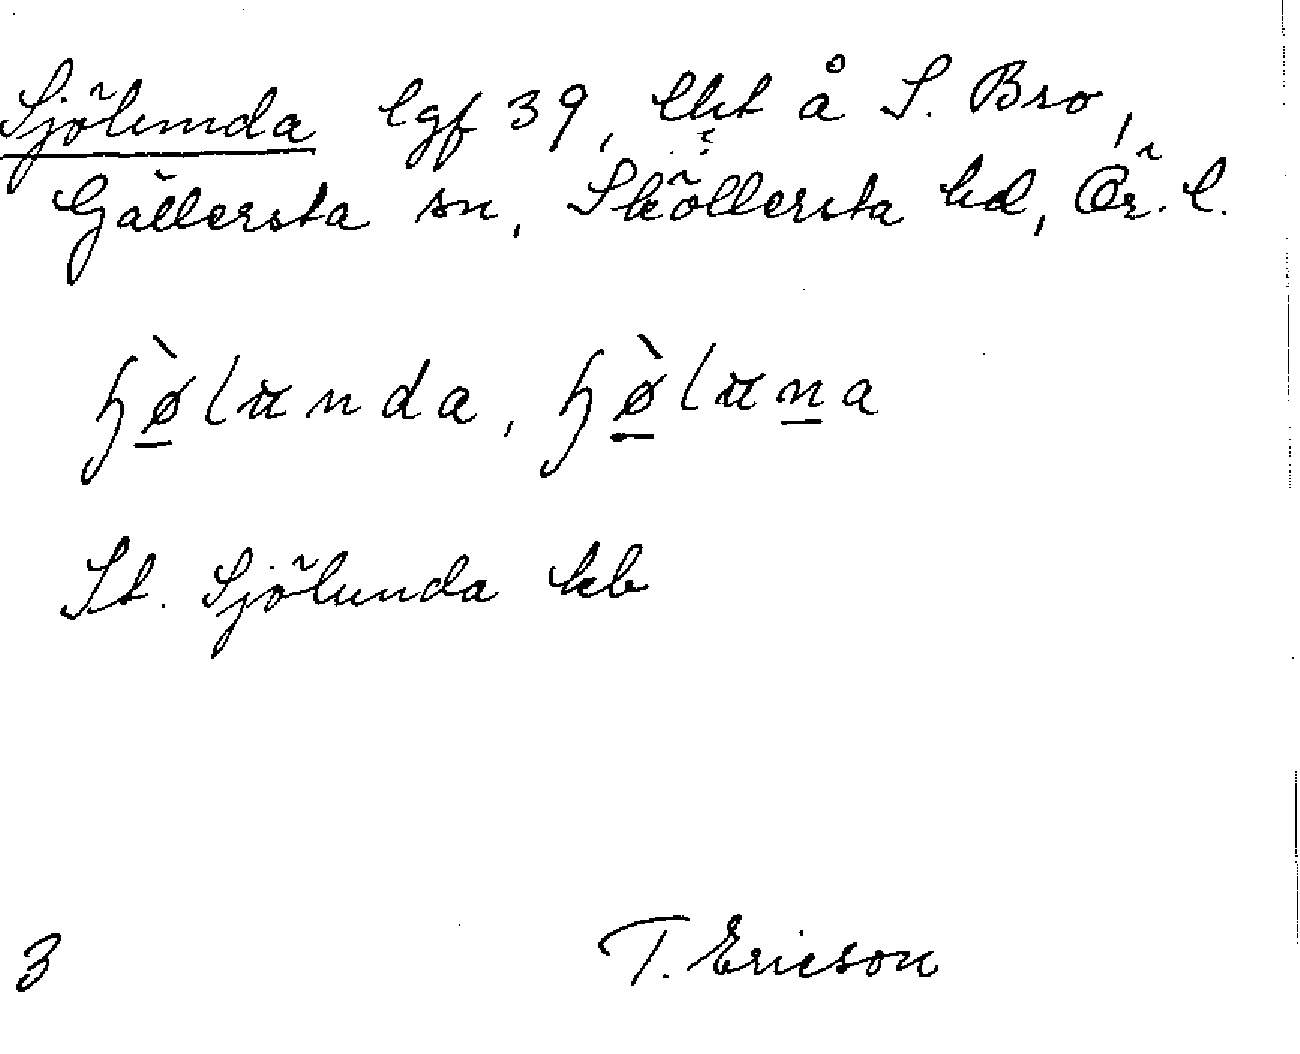 Sjölunda lgf 39, lht å S. Bro,
Gällersta sn, Sköllersta hd, Ör. l.
ɧø̱̀lunda, ɧø̱̀luṉa
St. Sjölunda kb
3 T. Ericson